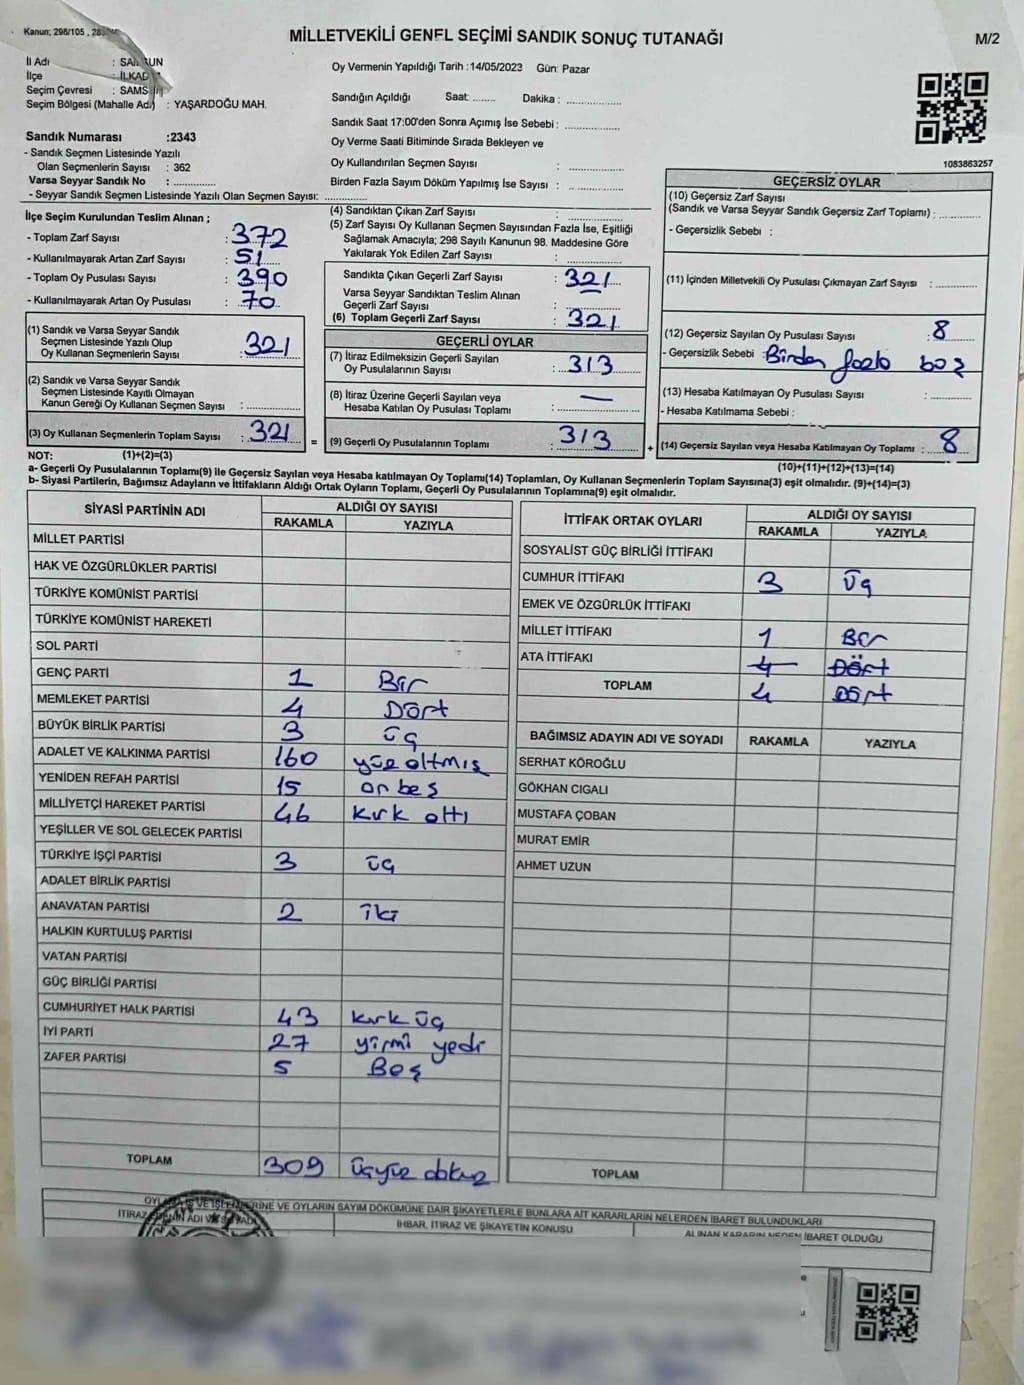 Kanun; 298/105 , 28
MİLLETVEKİLİ GENEL SEÇİMİ SANDIK SONUÇ TUTANAĞI
M/2
İl Adı : SAMSUN
İlçe : İLKAD
Seçim Çevresi : SAMS
Seçim Bölgesi (Mahalle Adı) : YAŞARDOĞU MAH.
Oy Vermenin Yapıldığı Tarih :14/05/2023 Gün: Pazar
Sandığın Açıldığı Saat: ........ Dakika : ...............
Sandık Saat 17:00'den Sonra Açımış İse Sebebi : ...............
Oy Verme Saati Bitiminde Sırada Bekleyen ve
Oy Kullandırılan Seçmen Sayısı : ...............
Birden Fazla Sayım Döküm Yapılmış İse Sayısı : ...............
1083863257
Sandık Numarası :2343
- Sandık Seçmen Listesinde Yazılı
Olan Seçmenlerin Sayısı : 362
Varsa Seyyar Sandık No : ............
- Seyyar Sandık Seçmen Listesinde Yazılı Olan Seçmen Sayısı: ............
İlçe Seçim Kurulundan Teslim Alınan ;
- Toplam Zarf Sayısı : 372
- Kullanılmayarak Artan Zarf Sayısı : 51
- Toplam Oy Pusulası Sayısı : 390
- Kullanılmayarak Artan Oy Pusulası : 70
(1) Sandık ve Varsa Seyyar Sandık
Seçmen Listesinde Yazılı Olup
Oy Kullanan Seçmenlerin Sayısı : 321
(2) Sandık ve Varsa Seyyar Sandık
Seçmen Listesinde Kayıtlı Olmayan
Kanun Gereği Oy Kullanan Seçmen Sayısı : ...............
(3) Oy Kullanan Seçmenlerin Toplam Sayısı : 321
(4) Sandıktan Çıkan Zarf Sayısı : ...............
(5) Zarf Sayısı Oy Kullanan Seçmen Sayısından Fazla İse, Eşitliği
Sağlamak Amacıyla; 298 Sayılı Kanunun 98. Maddesine Göre
Yakılarak Yok Edilen Zarf Sayısı : ...............
Sandıkta Çıkan Geçerli Zarf Sayısı : 321
Varsa Seyyar Sandıktan Teslim Alınan
Geçerli Zarf Sayısı : ...............
(6) Toplam Geçerli Zarf Sayısı : 321
GEÇERLİ OYLAR
(7) İtiraz Edilmeksizin Geçerli Sayılan
Oy Pusulalarının Sayısı : 313
(8) İtiraz Üzerine Geçerli Sayılan veya
Hesaba Katılan Oy Pusulası Toplamı : —
= (9) Geçerli Oy Pusulalarının Toplamı : 313
GEÇERSİZ OYLAR
(10) Geçersiz Zarf Sayısı
(Sandık ve Varsa Seyyar Sandık Geçersiz Zarf Toplamı) : ............
- Geçersizlik Sebebi :
(11) İçinden Milletvekili Oy Pusulası Çıkmayan Zarf Sayısı : ............
(12) Geçersiz Sayılan Oy Pusulası Sayısı : 8
- Geçersizlik Sebebi : Birden fazla boş
(13) Hesaba Katılmayan Oy Pusulası Sayısı : ............
- Hesaba Katılmama Sebebi :
+ (14) Geçersiz Sayılan veya Hesaba Katılmayan Oy Toplamı : 8
NOT: (1)+(2)=(3)
(10)+(11)+(12)+(13)=(14)
a- Geçerli Oy Pusulalarının Toplamı(9) ile Geçersiz Sayılan veya Hesaba katılmayan Oy Toplamı(14) Toplamları, Oy Kullanan Seçmenlerin Toplam Sayısına(3) eşit olmalıdır. (9)+(14)=(3)
b- Siyasi Partilerin, Bağımsız Adayların ve İttifakların Aldığı Ortak Oyların Toplamı, Geçerli Oy Pusulalarının Toplamına(9) eşit olmalıdır.
SİYASİ PARTİNİN ADI
ALDIĞI OY SAYISI
RAKAMLA YAZIYLA
MİLLET PARTİSİ
HAK VE ÖZGÜRLÜKLER PARTİSİ
TÜRKİYE KOMÜNİST PARTİSİ
TÜRKİYE KOMÜNİST HAREKETİ
SOL PARTİ
GENÇ PARTİ 1 Bir
MEMLEKET PARTİSİ 4 Dört
BÜYÜK BİRLİK PARTİSİ 3 üç
ADALET VE KALKINMA PARTİSİ 160 yüz altmış
YENİDEN REFAH PARTİSİ 15 on beş
MİLLİYETÇİ HAREKET PARTİSİ 46 kırk altı
YEŞİLLER VE SOL GELECEK PARTİSİ
TÜRKİYE İŞÇİ PARTİSİ 3 üç
ADALET BİRLİK PARTİSİ
ANAVATAN PARTİSİ 2 iki
HALKIN KURTULUŞ PARTİSİ
VATAN PARTİSİ
GÜÇ BİRLİĞİ PARTİSİ
CUMHURİYET HALK PARTİSİ 43 kırk üç
İYİ PARTİ 27 yirmi yedi
ZAFER PARTİSİ 5 Beş
TOPLAM 309 üçyüz dokuz
İTTİFAK ORTAK OYLARI
ALDIĞI OY SAYISI
RAKAMLA YAZIYLA
SOSYALİST GÜÇ BİRLİĞİ İTTİFAKI
CUMHUR İTTİFAKI 3 üç
EMEK VE ÖZGÜRLÜK İTTİFAKI
MİLLET İTTİFAKI 1 Bir
ATA İTTİFAKI 4 Dört
TOPLAM 4 Dört
BAĞIMSIZ ADAYIN ADI VE SOYADI RAKAMLA YAZIYLA
SERHAT KÖROĞLU
GÖKHAN CIGALI
MUSTAFA ÇOBAN
MURAT EMİR
AHMET UZUN
TOPLAM
OYLAMA İŞ VE İŞLEMLERİNE VE OYLARIN SAYIM DÖKÜMÜNE DAİR ŞİKAYETLERLE BUNLARA AİT KARARLARIN NELERDEN İBARET BULUNDUKLARI
İTİRAZ EDENİN ADI VE SOYADI
İHBAR, İTİRAZ VE ŞİKAYETİN KONUSU
ALINAN KARARIN NEDEN İBARET OLDUĞU